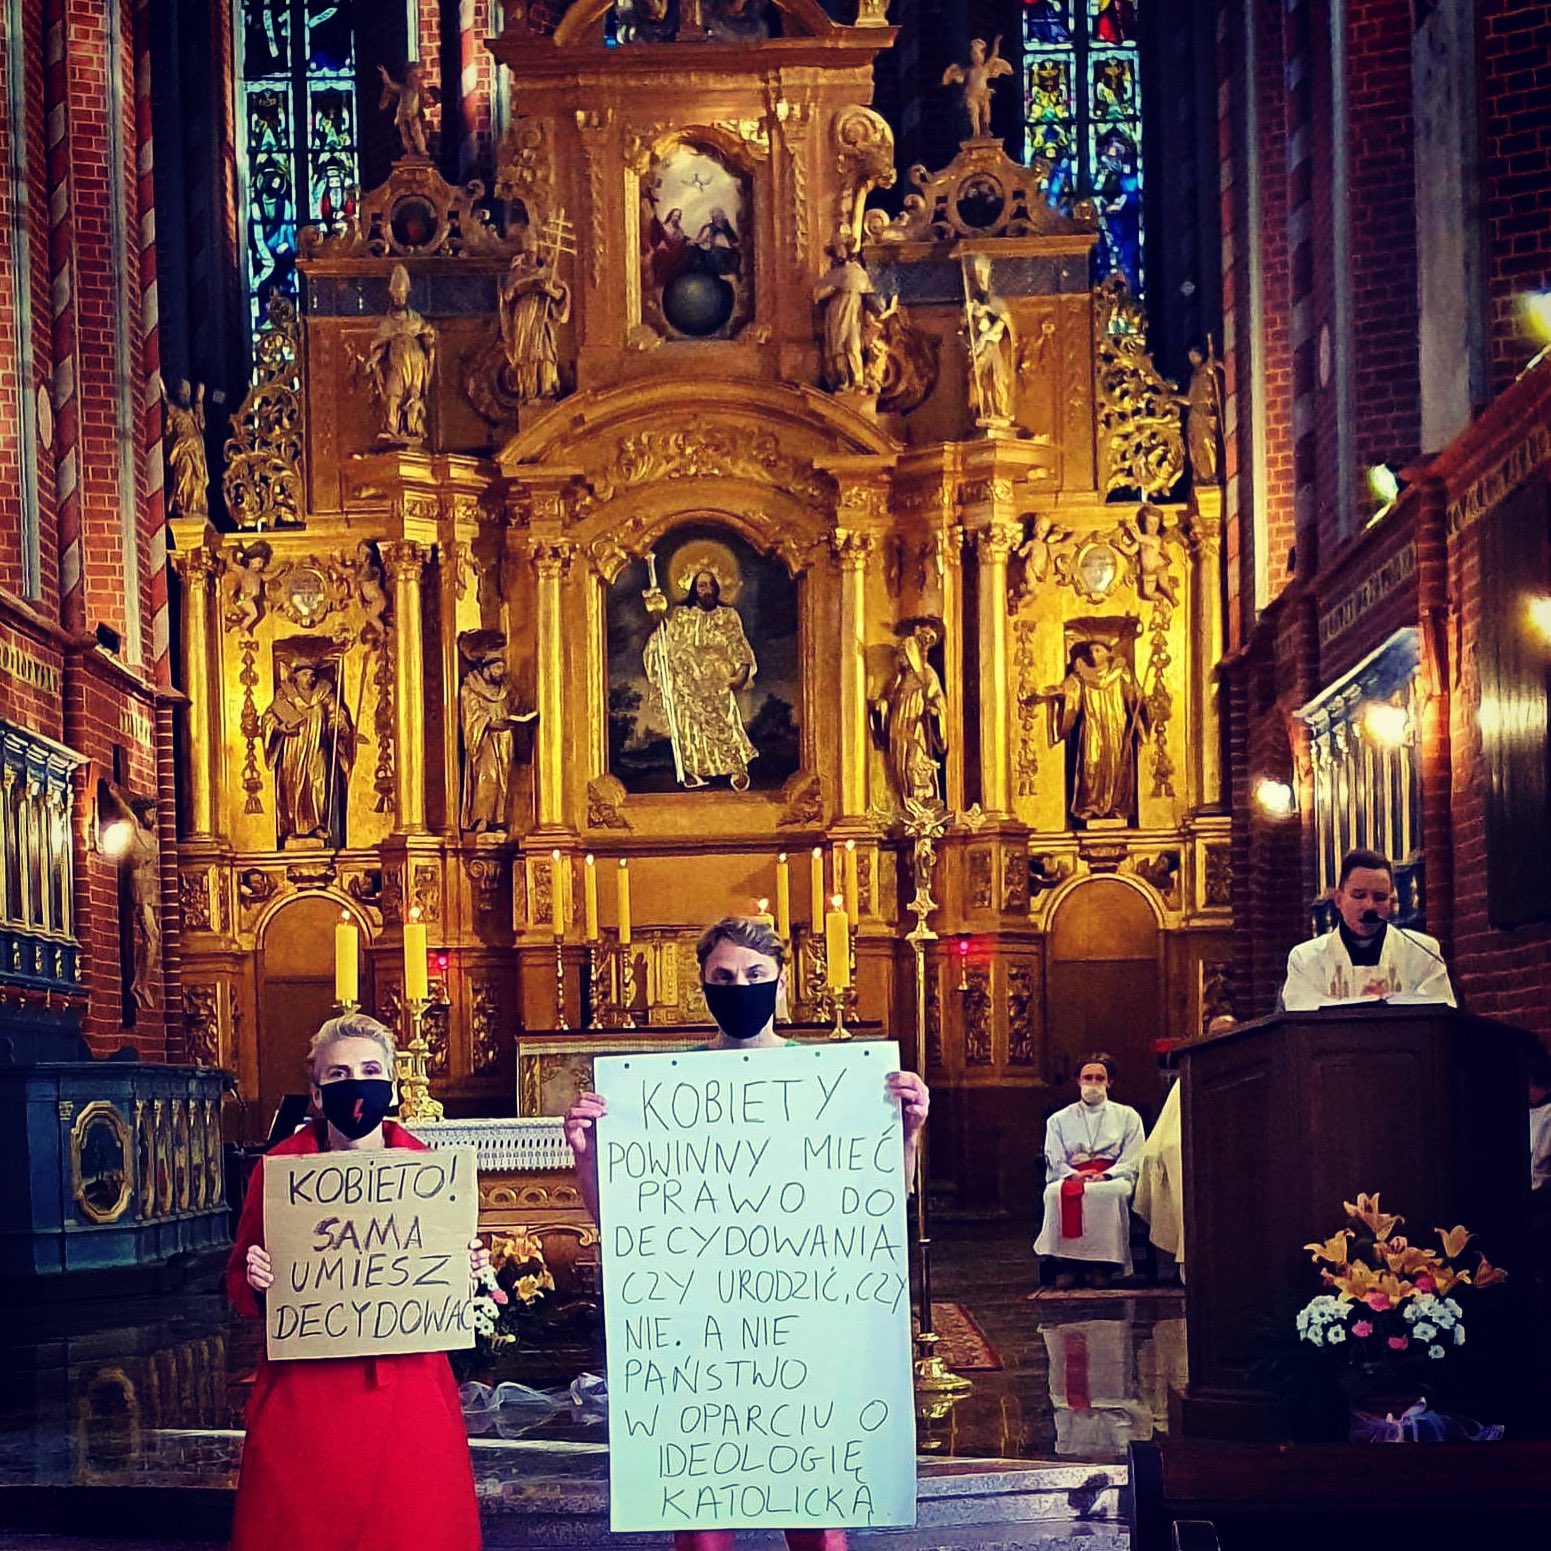 KOBIETO!
SAMA
UMIESZ
DECYDOWAĆ
KOBIETY
POWINNY MIEĆ
PRAWO DO
DECYDOWANIA
CZY URODZIĆ, CZY
NIE. A NIE
PAŃSTWO
W OPARCIU O
IDEOLOGIĘ
KATOLICKĄ